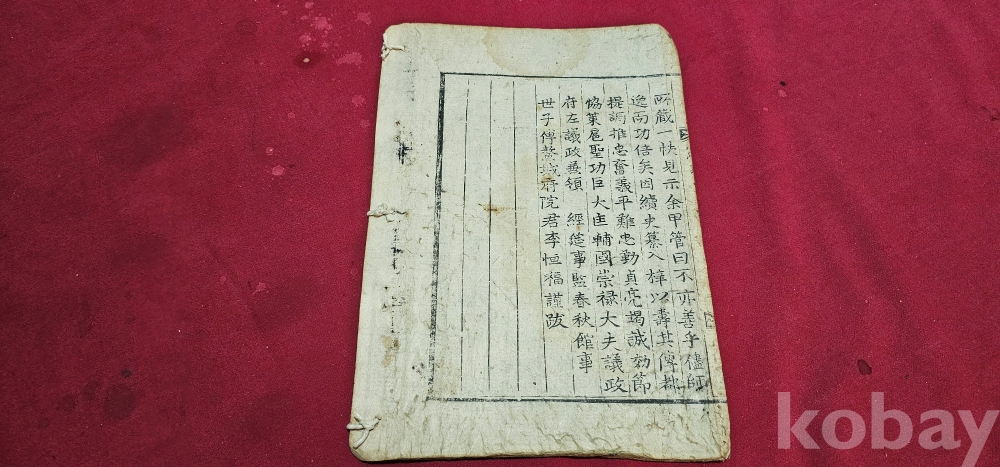 所藏一帙見示余甲管曰不亦善乎儘師
逸而功倍矣因續史纂入梓以壽其傳都
提調推忠奮義平難忠勤貞亮竭誠効節
協策扈聖功臣大匡輔國崇禄大夫議政
府左議政兼領 經筵事監春秋館事
世子傅鰲城府院君李恒福謹跋
kobay